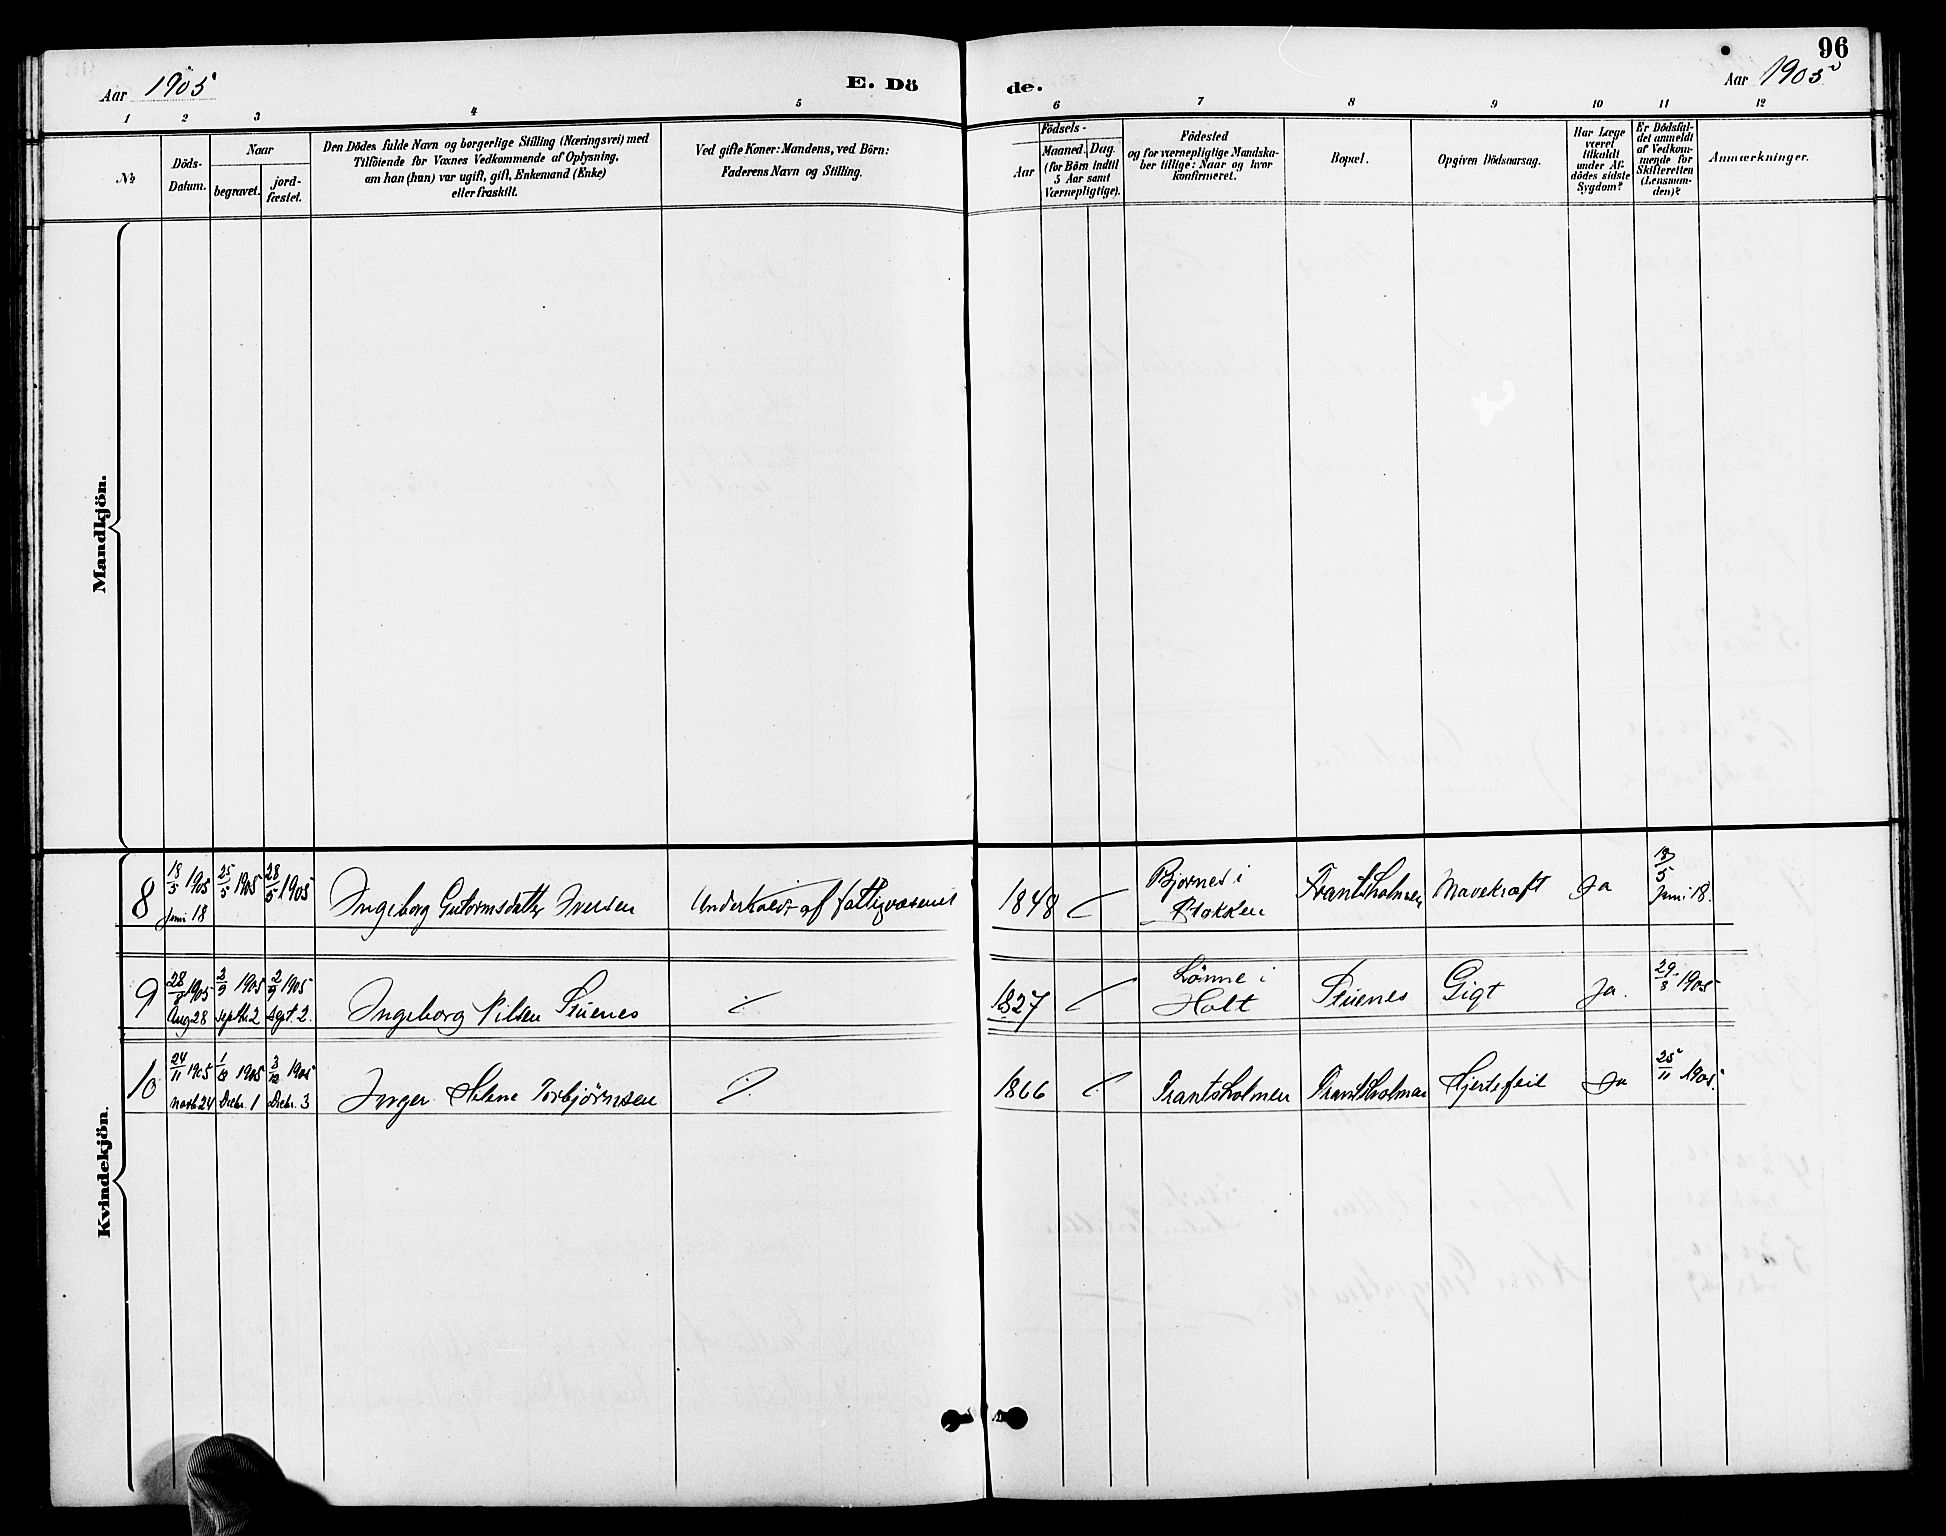 96
Aar 1905
E. Dö
de.
Aar 1905
1 2 3 4 5 6 7 8 9 10 11 12
No
Döds-
Datum.
Naar
begravet.
jord-
fæstet.
Den Dödes fulde Navn og borgerlige Stilling (Næringsvei) med
Tilföiende for Voxnes Vedkommende af Oplysning,
om han (hun) var ugift, gift, Enkemand (Enke)
eller fraskilt.
Ved gifte Koner: Mandens, ved Börn:
Faderens Navn og Stilling.
Födsels-
Aar
Maaned. Dag.
(for Börn indtil
5 Aar samt
Værnepligtige).
Födested
og for værnepligtige Mandska-
ber tillige: Naar og hvor
konfirmeret.
Bopæl.
Opgiven Dödsaarsag.
Har Læge
været
tilkaldt
under Af-
dödes sidste
Sygdom?
Er Dödsfal-
det anmeldt
af Vedkom-
mende for
Skifteretten
(Lensman-
den)?
Anmærkninger.
Mandkjön.
Kvindekjön.
8 18/5 1905 25/5 1905 28/5 1905 Ingeborg Gutormsdatter Iversen Underholdt af Fattigvæsenet 1848 Bjornes i Frantsholmen Mavekræft Ja 18/5
Juni 18 Stokken Juni 18.
9 28/8 1905 2/9 1905 2/9 1905 Ingeborg Nilsen Stuenes 1827 Lønne i Stuenes Gigt Ja. 29/8 1905
Aug 28 Septbr 2 Sept. 2. Holt
10 24/11 1905 1/12 1905 3/12 1905 Inger Helene Torbjørnsen 1866 Frantsholmen Frantsholmen Hjertefeil Ja 25/11 1905.
Novb 24 Decbr. 1 Decbr. 3